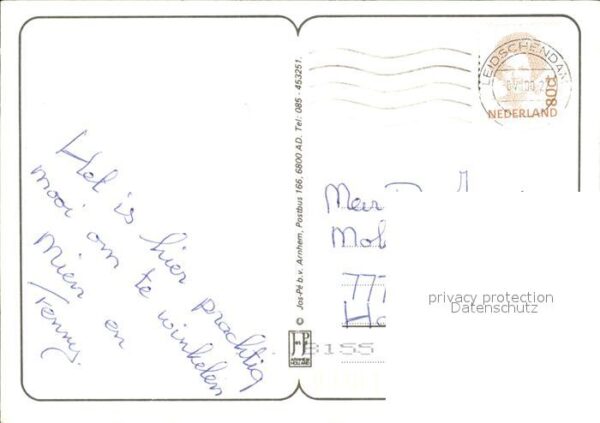 Het is hier prachtig
mooi om te winkelen
Mien en
Fenny.
© Jos-Pé b.v. Arnhem, Postbus 166, 6800 AD. Tel: 085 - 453251.
JP
ARNHEM
HOLLAND
LEIDSCHENDAM
80ct
NEDERLAND
Mol
777
8155
privacy protection
Datenschutz